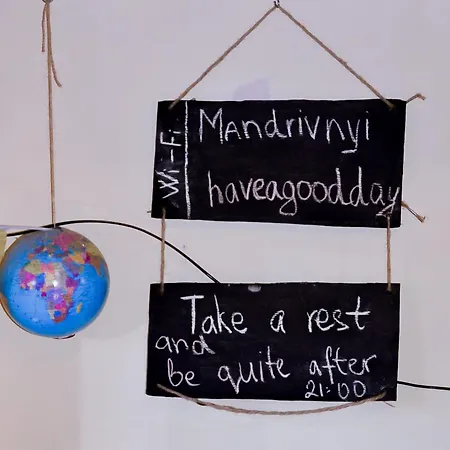 Wi-Fi
Mandrivnyi
haveagoodday
Take a rest
and
be quite after
21:00